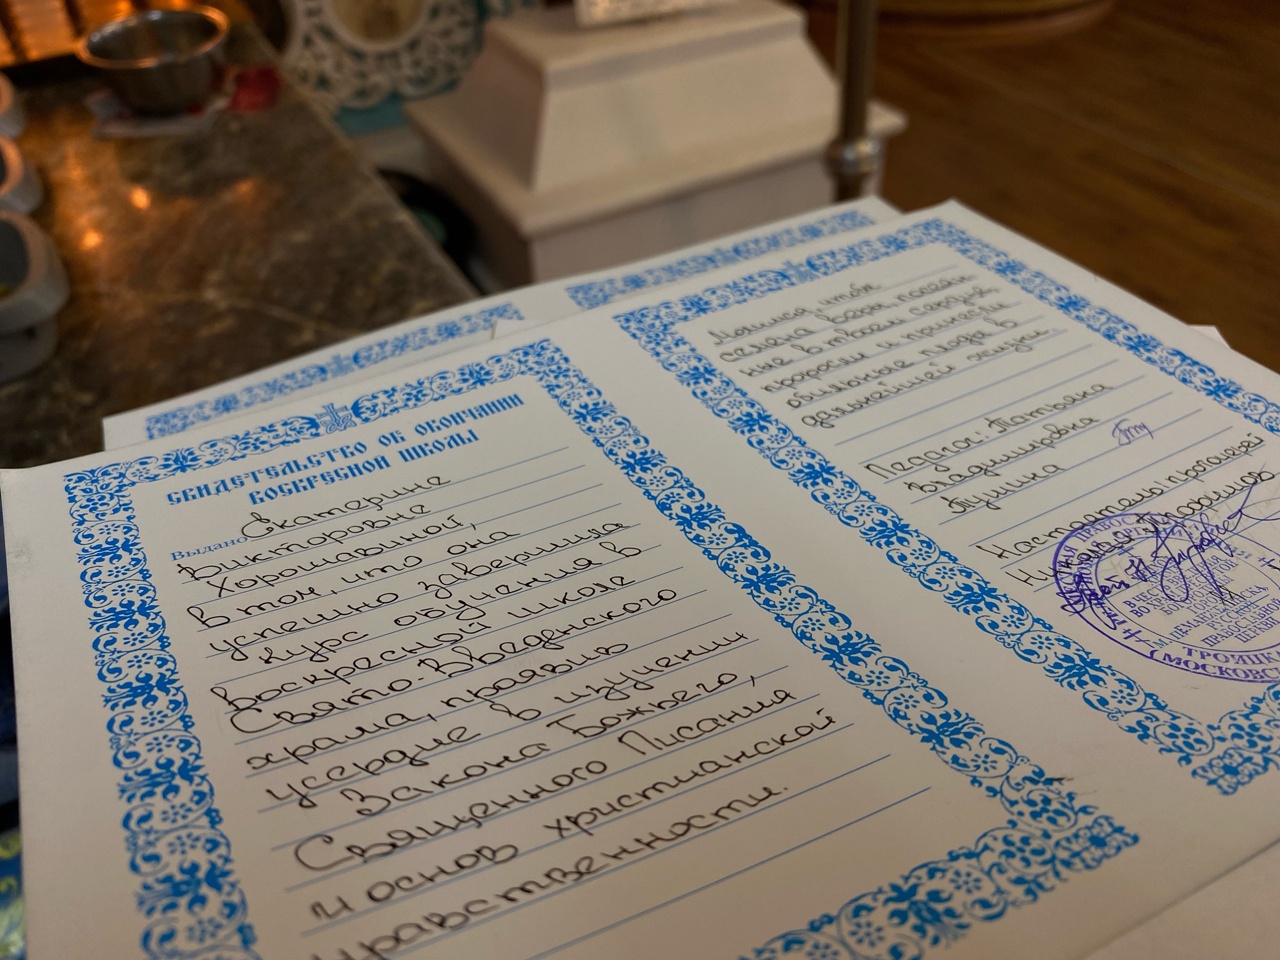 СВИДЕТЕЛЬСТВО ОБ ОКОНЧАНИИ
ВОСКРЕСНОЙ ШКОЛЫ
Выдано Екатерине
Викторовне
Хорошавиной,
в том, что она
успешно завершила
курс обучения в
воскресной школе
Свято-Введенского
храма, проявив
усердие в изучении
Закона Божьего,
Священного Писания
и основ христианской
нравственности.
семена веры посеян
ные в твоем сердце
проросли и принесли
обильные плоды в
дальнейшей жизни.
Педагог: Татьяна
Владимировна
Тушина
Настоятель: протоиерей